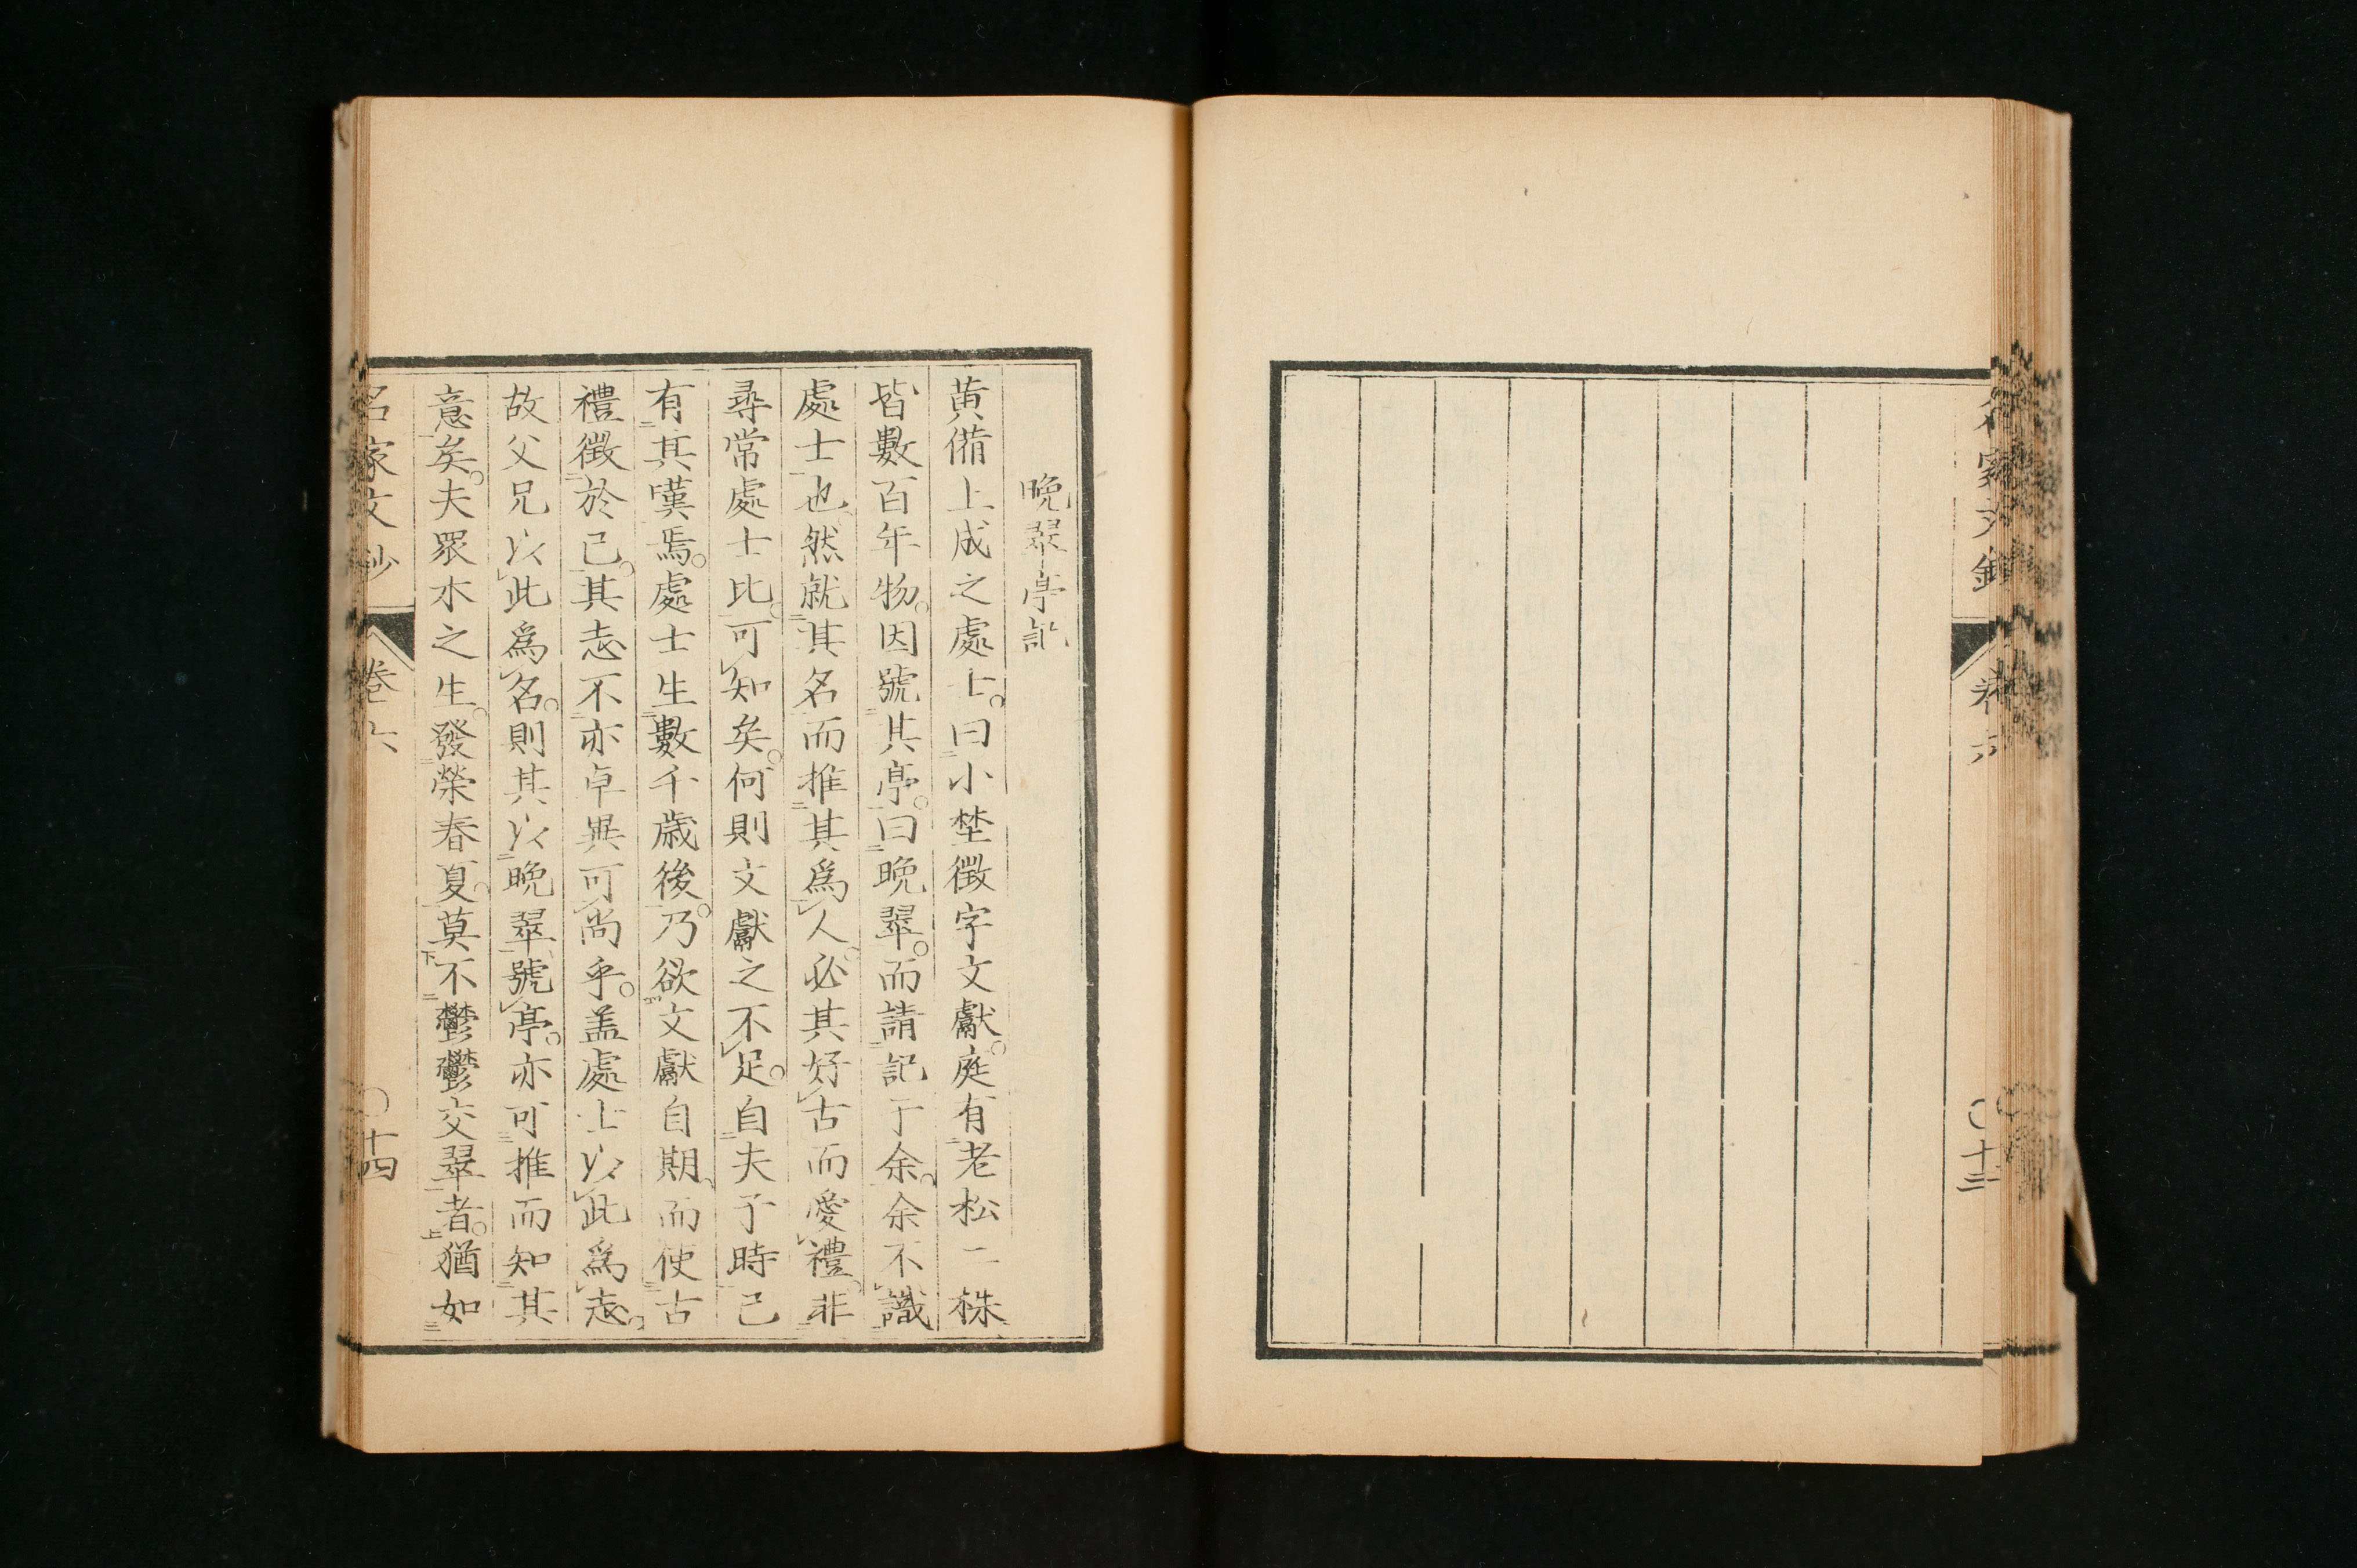 名家文鈔 卷六 〇十三
晩翠亭記
黃備上成之處士。曰小埜徵字文獻。庭有老松二株
皆數百年物。因號其亭。曰晩翠。而請記于余。余不識
處士也。然就其名而推其爲人。必其好古而愛禮。非
尋常處士比。可知矣。何則文獻之不足。自夫子時已
有其嘆焉。處士生數千歲後。乃欲文獻自期。而使古
禮徵於己。其志不亦卓異可尚乎。盖處士以此爲志。
故父兄以此爲名。則其以晩翠號亭。亦可推而知其
意矣。夫眾木之生。發榮春夏。莫不鬱鬱交翠者。猶如
名家文鈔 卷六 〇十四